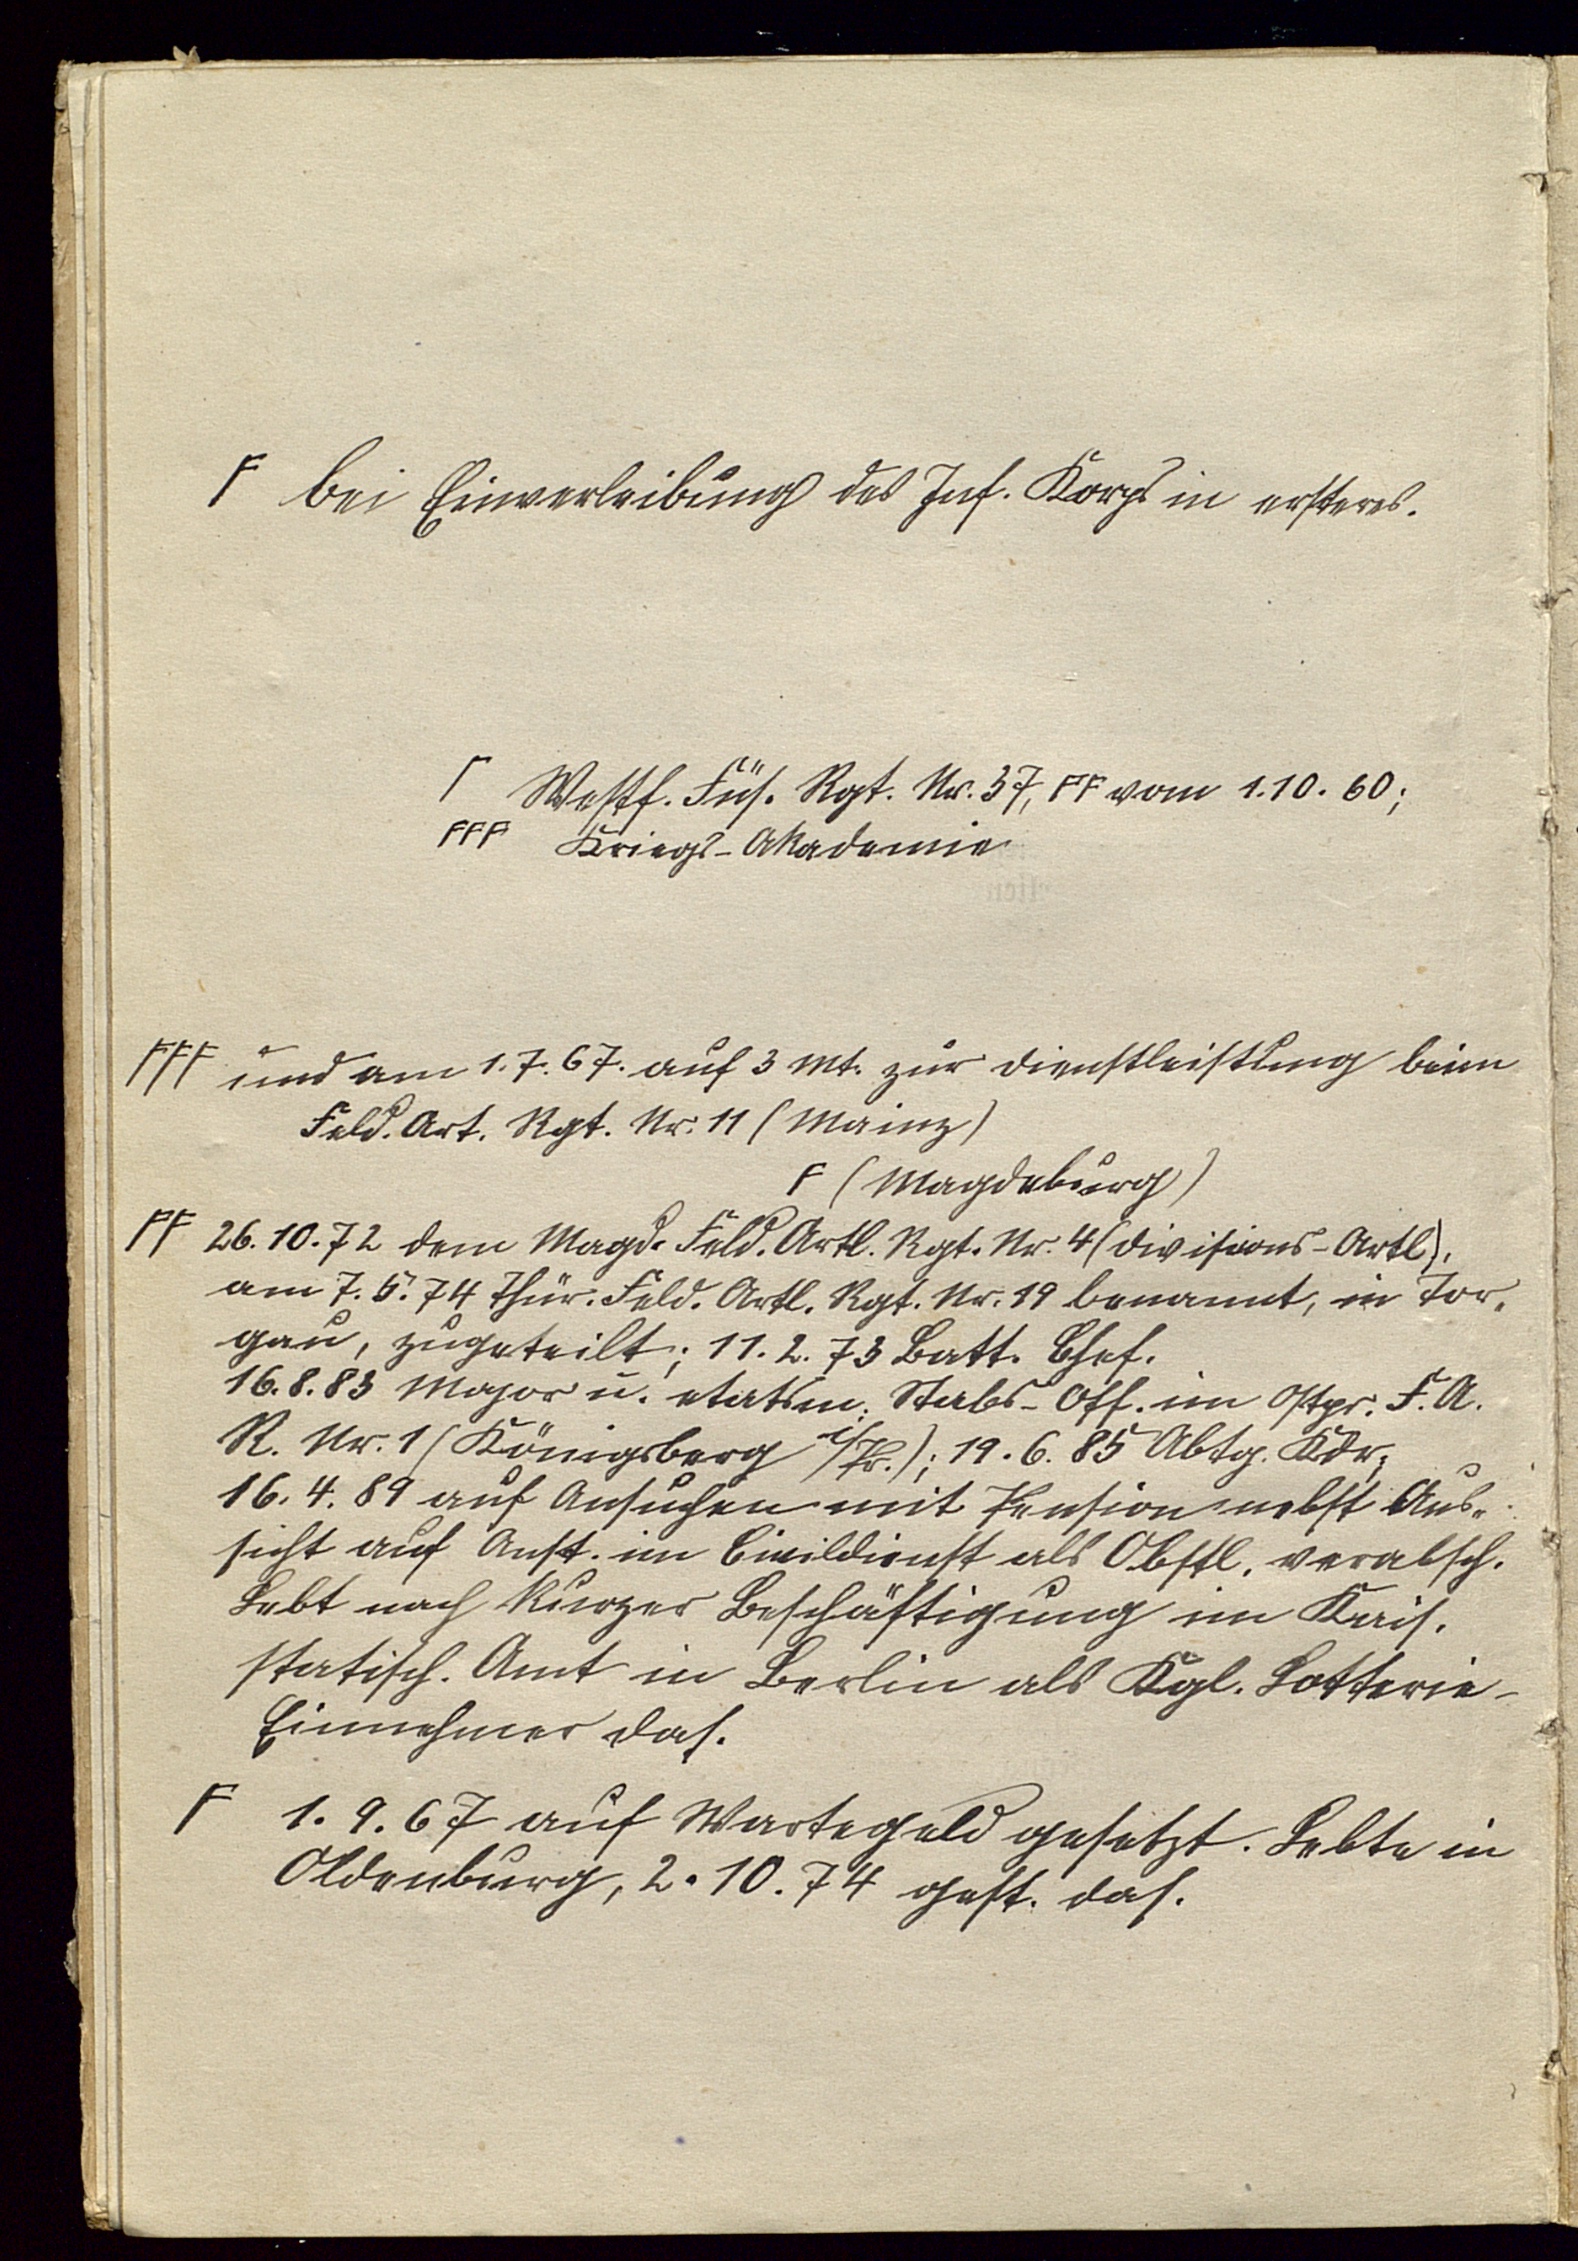 F bei Einverleibung des Inf. Korps in ersteres.
Γ Westf. Füs. Rgt. Nr. 37, FF vom 1.10.60;
FFF Kriegs-Akademie
FFF und am 1.7.67. auf 3 Mt. zur Dienstleistung beim
Feld. Art. Rgt. Nr. 11 (Mainz)
F (Magdeburg)
FF 26.10.72 dem Magd. Feld. Artl. Rgt. Nr. 4 (Divisions-Artl),
am 7.5.74 Thür. Feld. Artl. Rgt. Nr. 19 benannt, in Tor-
gau, zugeteilt; 11.2.73 Batt. Chef.
16.8.83 Major u. etatsm. Stabs-Off. im Ostpr. F. A.
R. Nr. 1 (Königsberg i/Pr.); 19.6.85 Abtg. Kdr;
16.4.89 auf Ansuchen mit Pension nebst Aus-
sicht auf Anst. im Civildienst als Obstl. verabsch.
Lebt nach kurzer Beschäftigung im Kais.
statisch. Amt in Berlin als Kgl. Lotterie-
Einnehmer das.
F 1.9.67 auf Wartegeld gesetzt. Lebte in
Oldenburg, 2.10.74 gest. das.